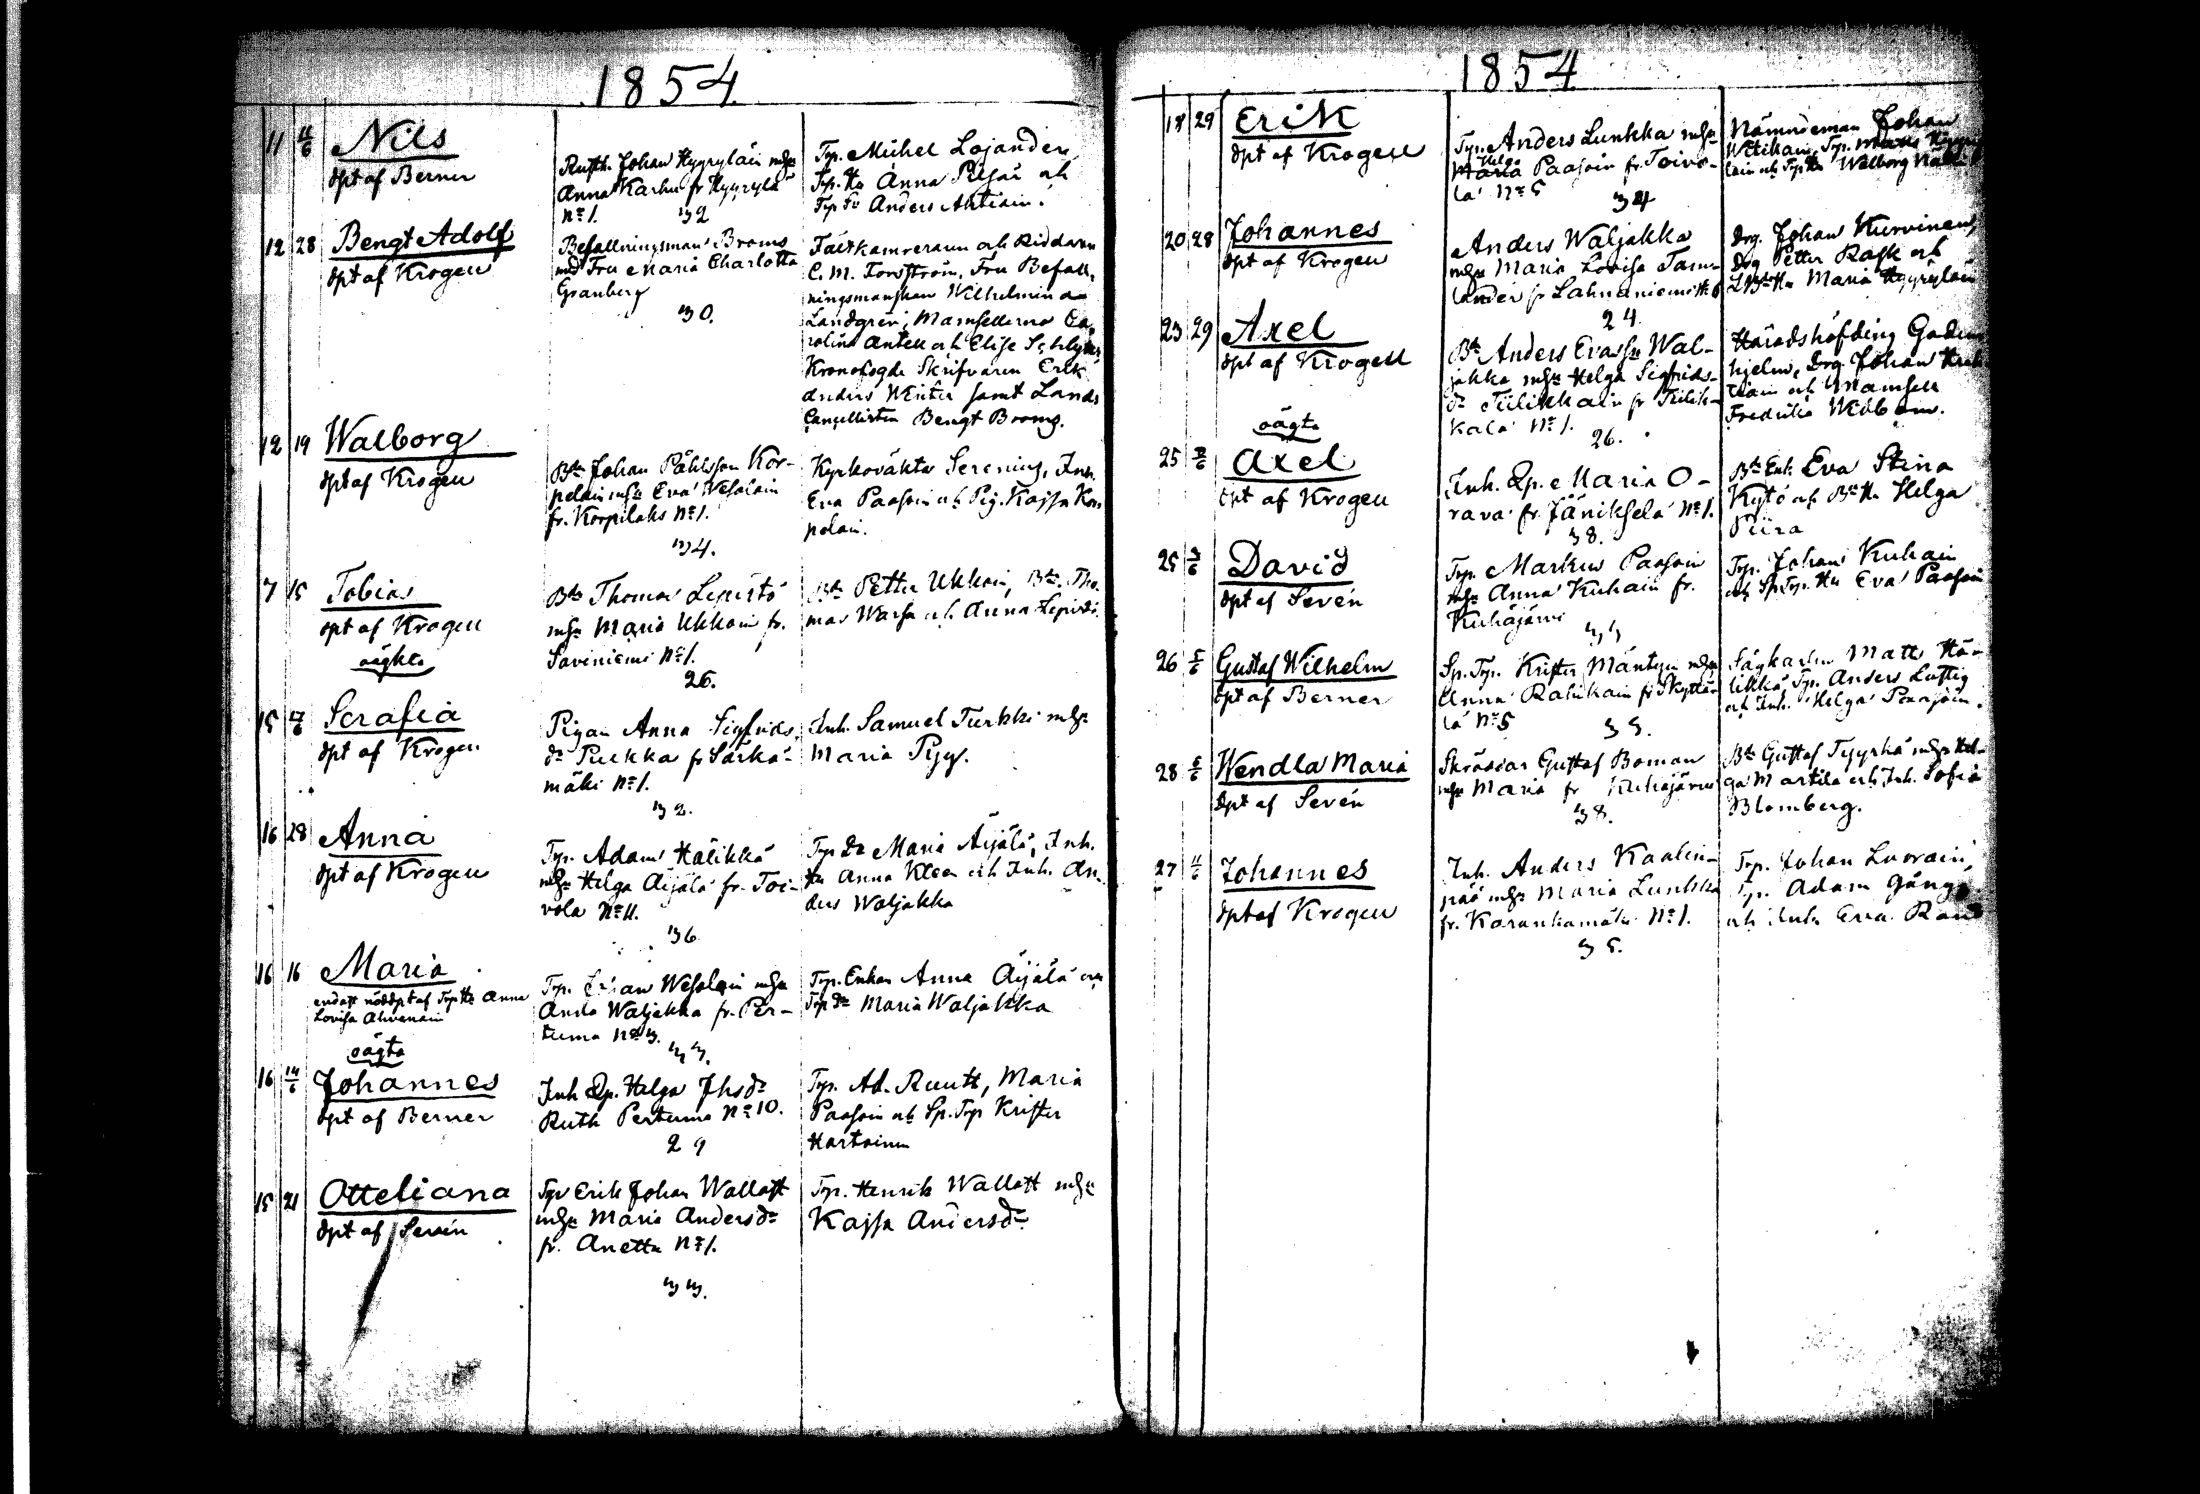 1854
11 11/6 Nils
dpt af Berner
Rusth. Johan Hyyryläin mhu
Anna Karhu fr Hyyrylä
No 1. 32
Trp. Michel Lojander,
Trp. Hu Anna och
Trp Sr Anders Ahtiain.
12 28 Bengt Adolf
dpt af Krogell
Befallningsman Broms
med Fru Maria Charlotta
Granberg
30.
Fältkamreraren och Riddaren
C. M. Forsström, Fru Befall-
ningsmanskan Wilhelmina
Landgren, Mamsellerna Ca-
rolina Antell och Elise
Kronofogde Skrifvaren Erik
Anders Winter samt Lands
Cancellisten Bengt Broms.
12 19 Walborg
dpt af Krogell
Bde Johan Påhlsson Kor-
pelain mhu Eva Wesalain
fr. Korpilaks No 1.
34.
Kyrkoväkter Serenius, Inh.
Eva Paasoin och Pig. Kajsa Kor-
pelain.
7 15 Tobias
dpt af Krogell
Bde Thomas Lepistö
mhu Maria Ukkoin fr.
Saviniemi No 1.
26.
Bde Petter Ukkoin, Bde Tho-
mas Warsa och Anna Lepistö.
oägta
15 17/6 Serafia
dpt af Krogell
Pigan Anna Sigfrids
dr Pukka fr Särkä-
mäki No 1.
32.
Inh. Samuel Turkki mhu
Maria Pyy.
16 28 Anna
dpt af Krogell
Trp. Adam Hälikkä
mhu Helga Äijälä fr. Toi-
vola No 11.
36
Trp Dr Maria Äijälä, Inh.
Hu Anna Kleen och Inh. An-
ders Waljakka
16 16 Maria
endast nöddpt af Trp Hu Anna
Lovisa Ahvenain
Trp. Johan Wesalain mhu
Anna Waljakka fr. Per-
tuma No 3.
33.
Trp. Enkan Anna Äijälä och
Trp Dr Maria Waljakka
oägta
16 14/6 Johannes
dpt af Berner
Inh Qp. Helga Jhsdr
Ruth Pertuma No 10.
29
Trp. Ad. Ruutt, Maria
Paasoin och Sp. Trp Krister
Hartoinen
15 21 Otteliana
dpt af Sevén
Trp Erik Johan Wallast
mhu Maria Andersdr
fr. Anettu No 1.
33.
Trp. Henrik Wallast mhu
Kajsa Andersdr
1854
18 29 Erik
dpt af Krogell
Trp. Anders Lunkka mhu
Helga
Maria Paasoin fr. Toivo-
la No 5
34
Nämndeman Johan
Wetikain, Trp. Matts Hyyry-
läin och Trp Hu Walborg
20 28 Johannes
dpt af Krogell
Anders Waljakka
mhu Maria Lovisa Tam-
lander fr Lahnaniemi No 6
24
Drg. Johan Kurvinen,
Drg Petter Rask och
Hu Maria Hyyryläin
23 29 Axel
dpt af Krogell
Bde Anders Evasson Wal-
jakka mhu Helga Sigfrids-
dr Tiilikkain fr Tiilik-
kala No 1.
26.
Häradshöfding Gadden-
hjelm, Drg. Johan
och Mamsell
Fredrika Widbom.
oägta
25 2/6 Axel
dpt af Krogell
Inh. Qp. Maria O-
rava fr. Jänikselä No 1.
38.
Bde Enk. Eva Stina
Kytö och Bde Hu Helga
Piira
25 3/6 David
dpt af Sevén
Trp. Markus Paasoin
mhu Anna Kuhain fr.
Kuhajärvi
35
Trp. Johan Kuhain
och Sp. Trp. Hu Eva Paasoin
26 5/6 Gustaf Wilhelm
dpt af Berner
Sp. Trp. Krister Mäntyin mhu
Anna Ratikain fr Skyttä-
lä No 5
35.
Sågkarlen Matts Hä-
likkä Trp. Anders Lustig
och Inh. Helga Paasoin.
28 6/6 Wendla Maria
dpt af Sevén
Skräddar Gustaf Boman
mhu Maria fr Kuhajärvi
38.
Bde Gustaf Tyyskä mhu Hel-
ga Martila och Inh. Sofia
Blomberg.
27 11/6 Johannes
dpt af Krogell
Inh. Anders Kaalin-
pää mhu Maria Lunkka
fr. Karankamäki No 1.
35.
Trp. Johan Luorain,
Trp. Adam Gäng
och Inh. Eva